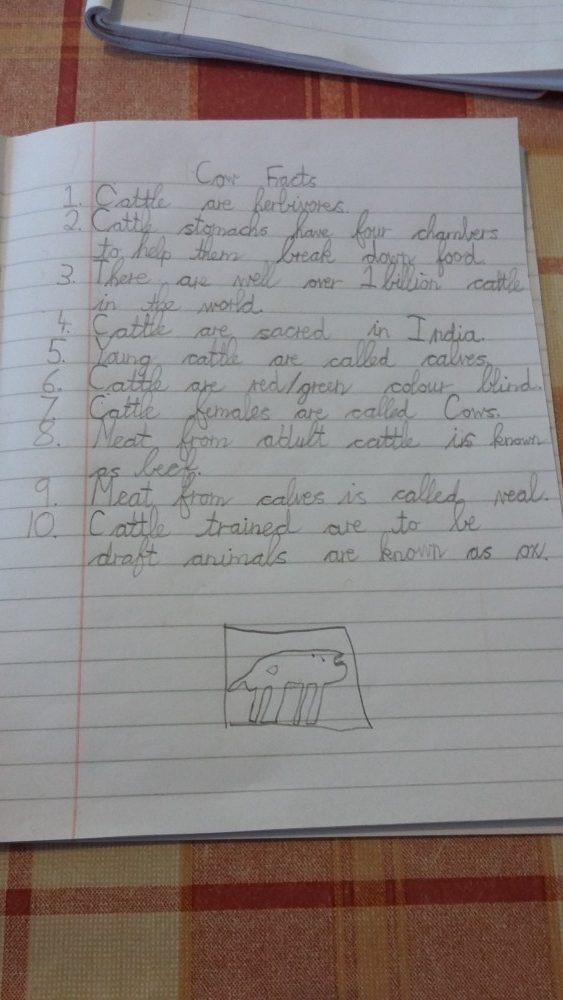 Cow Facts
1. Cattle are herbivores.
2. Cattle stomachs have four chambers
to help them break down food.
3. There are well over 1 billion cattle
in the world.
4. Cattle are sacred in India.
5. Young cattle are called calves.
6. Cattle are red/green colour blind.
7. Cattle females are called Cows.
8. Meat from adult cattle is known
as beef.
9. Meat from calves is called veal.
10. Cattle trained are to be
draft animals are known as ox.